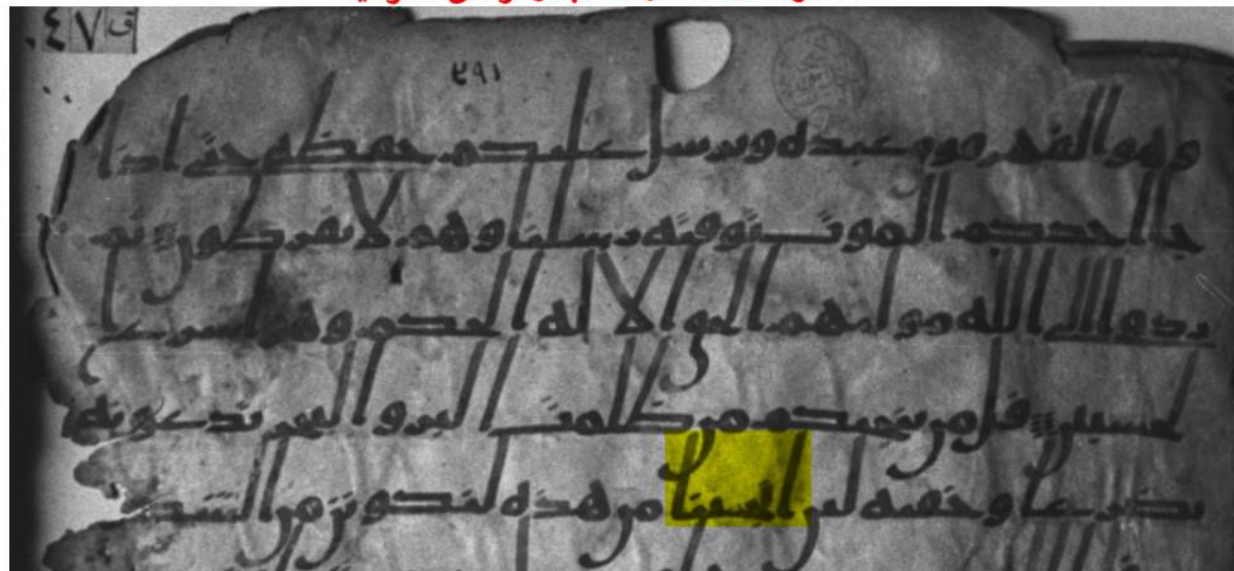 ق ٤٧
٢٩١
وهو القهر فوق عبده ويرسل عليكم حفظه حتى اذا
جا احدكم الموت توفته رسلنا وهم لا يفرطون ثم
ردوا الى الله مولهم الحق الا له الحكم وهو اسرع
الحسبين قل من ينجيكم من ظلمت البر والبحر تدعونه
تضرعا وخفيه لئن انجيتنا من هذه لنكونن من الشكر